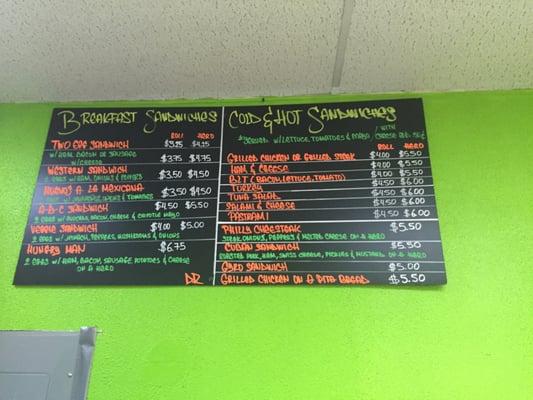 Breakfast Sandwiches
Roll Hero
Two Egg Sandwich $3.25 $4.25
w/ Ham, Bacon or Sausage $3.75 $4.75
w/ Cheese
Western Sandwich $3.50 $4.50
2 Eggs w/ Ham, Onions & Peppers
Huevos A La Mexicana $3.50 $4.50
Eggs w/ Jalapeño, Onions & Tomatoes
A-B-C Sandwich $4.50 $5.50
2 Eggs w/ Avocado, Bacon, Cheese & Chipotle Mayo
Veggie Sandwich $4.00 $5.00
2 Eggs w/ Spinach, Peppers, Mushrooms & Onions
Hungry Man $6.75
2 Eggs w/ Ham, Bacon, Sausage, Potatoes & Cheese
on a Hero
DR
Cold & Hot Sandwiches
*Served w/ Lettuce, Tomatoes & Mayo / with Cheese add .50¢
Roll Hero
Grilled Chicken or Grilled Steak $4.00 $5.50
Ham & Cheese $4.00 $5.50
B.L.T (Bacon, Lettuce, Tomato) $4.00 $5.50
Turkey $4.50 $6.00
Tuna Salad $4.50 $6.00
Salami & Cheese $4.50 $6.00
Pastrami $4.50 $6.00
Philly Cheesteak $5.50
Steak, Onions, Peppers & Melted Cheese on a Hero
Cuban Sandwich $5.50
Roasted Pork, Ham, Swiss Cheese, Pickles & Mustard on a Hero
Gyro Sandwich $5.00
Grilled Chicken on a Pita Bread $5.50